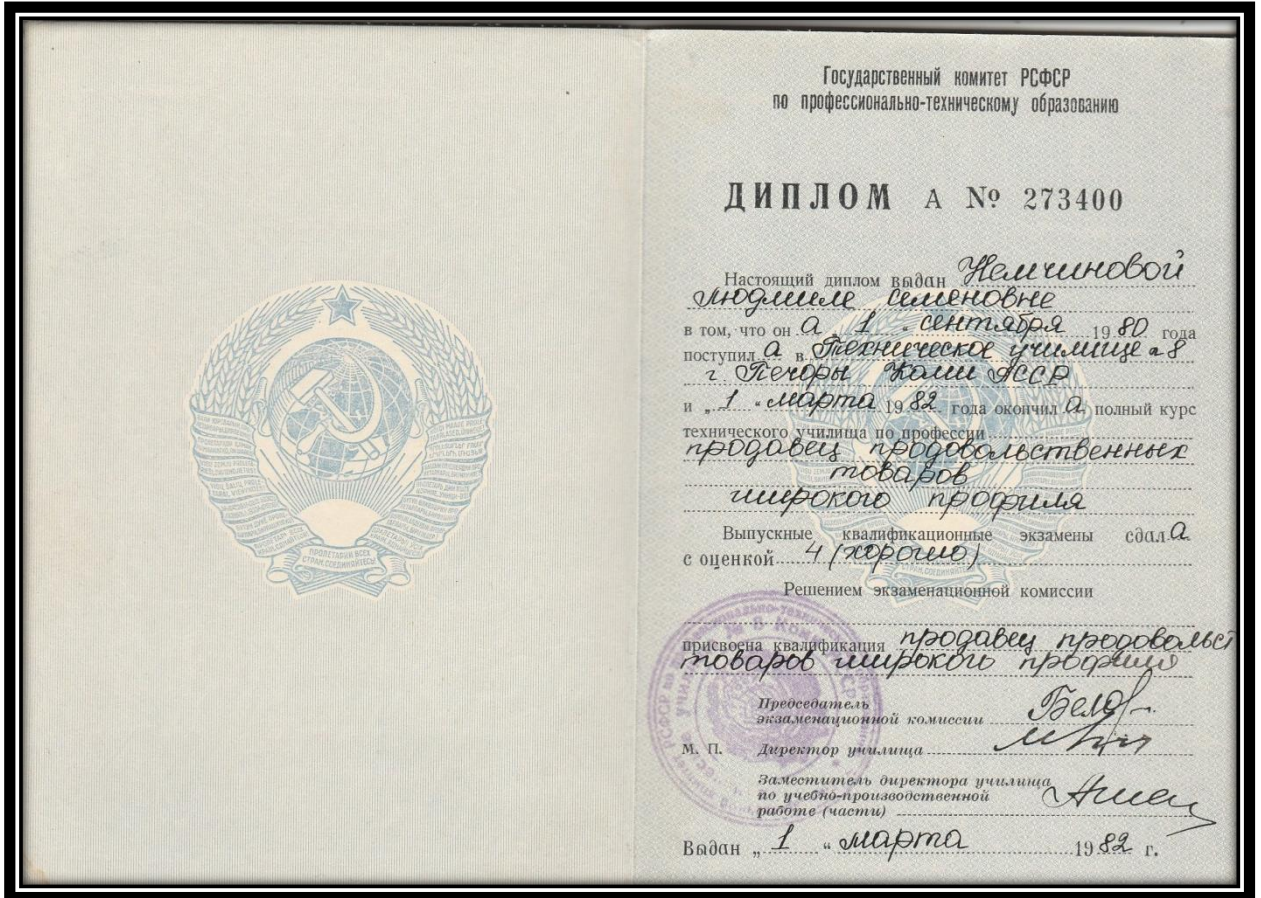 ПРОЛЕТАРИИ ВСЕХ
СТРАН, СОЕДИНЯЙТЕСЬ!
Государственный комитет РСФСР
по профессионально-техническому образованию
ДИПЛОМ А № 273400
Настоящий диплом выдан Немчиновой
Людмиле Семеновне
в том, что он а „ 1 “ сентября 1980 года
поступил а в Техническое училище №8
г Печоры Коми АССР
и „ 1 “ марта 1982 года окончил а полный курс
технического училища по профессии
продавец продовольственных
товаров
широкого профиля
Выпускные квалификационные экзамены сдал а
с оценкой 4 (хорошо)
Решением экзаменационной комиссии
присвоена квалификация продавец продовольст
товаров широкого профиля
Председатель
экзаменационной комиссии
М. П. Директор училища
Заместитель директора училища
по учебно-производственной
работе (части)
Выдан „ 1 “ марта 1982 г.